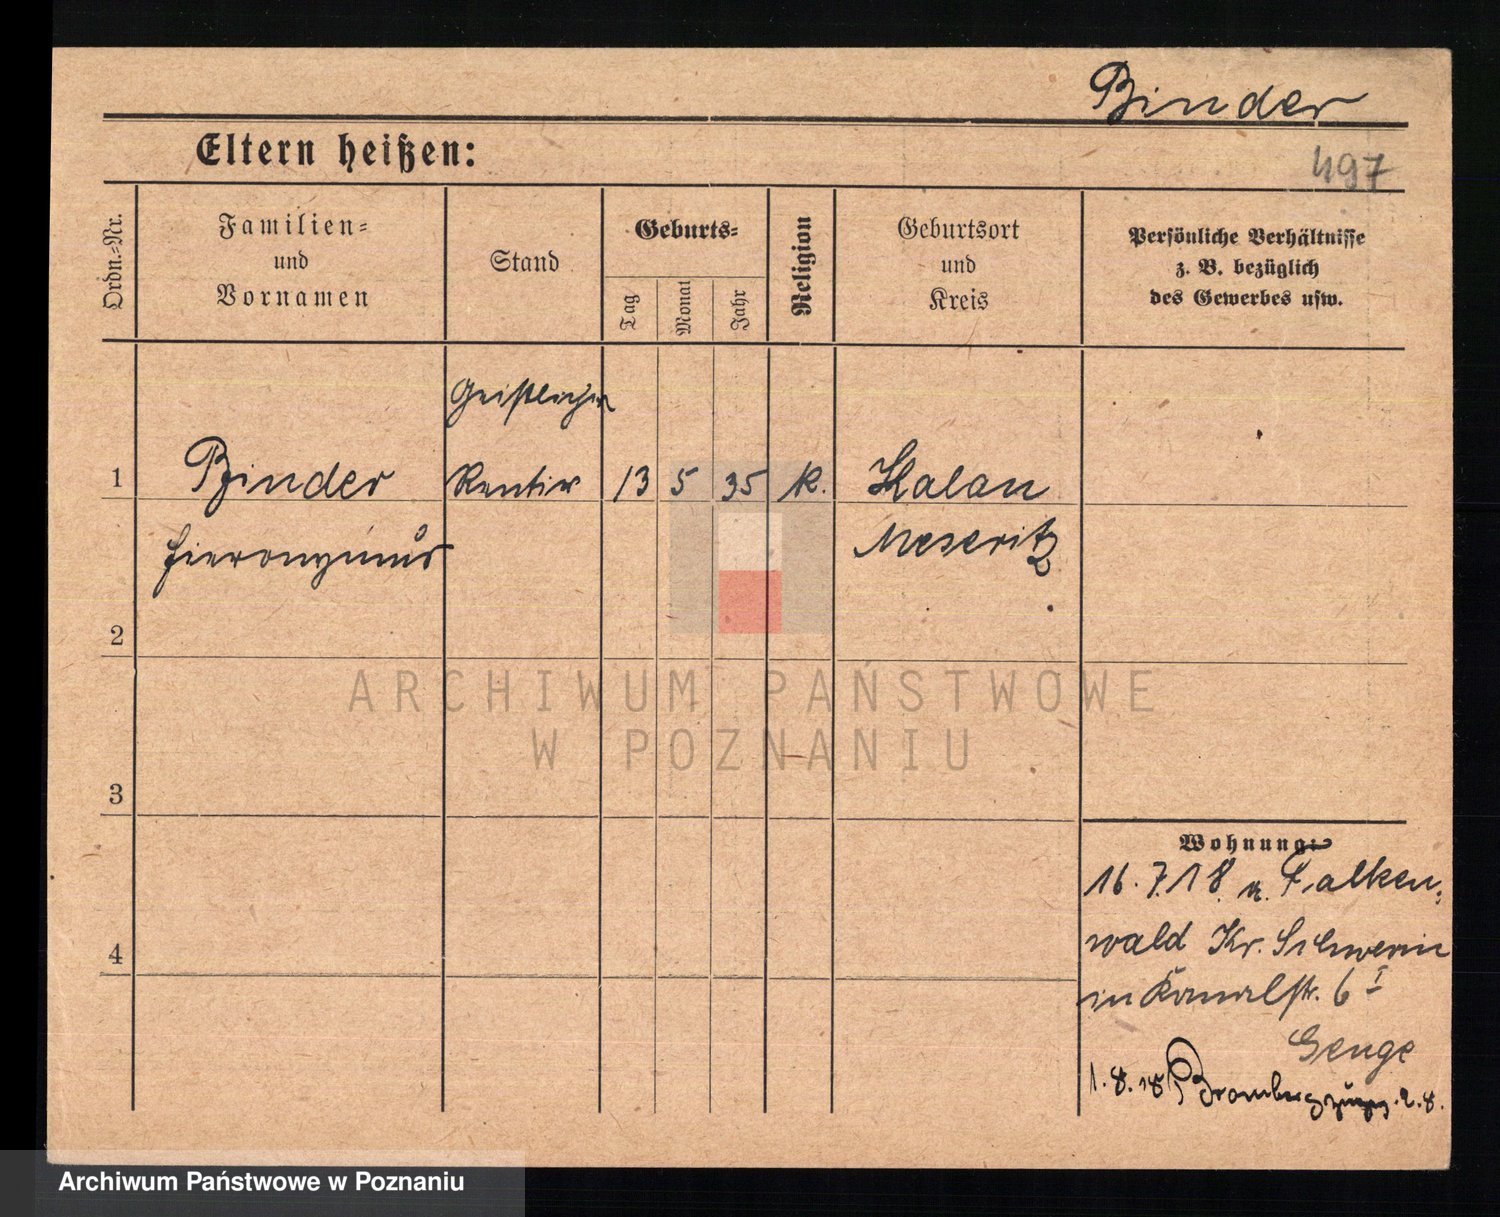 Binder
Eltern heißen:
497
Ordn.-Nr.
Familien-
und
Vornamen
Stand
Geburts-
Tag
Monat
Jahr
Religion
Geburtsort
und
Kreis
Persönliche Verhältnisse
z. B. bezüglich
des Gewerbes usw.
Geistlicher
1 Binder Rentier 13 5 35 k. Kalau
Hieronymus Meseritz
2
ARCHIWUM PAŃSTWOWE
W POZNANIU
3
Wohnung:
16.7.18 a. Falken-
wald Kr. Schwerin
4
in Kanalstr. 6 I
Genge
1.8.18 Bromberg 2.8.
Archiwum Państwowe w Poznaniu